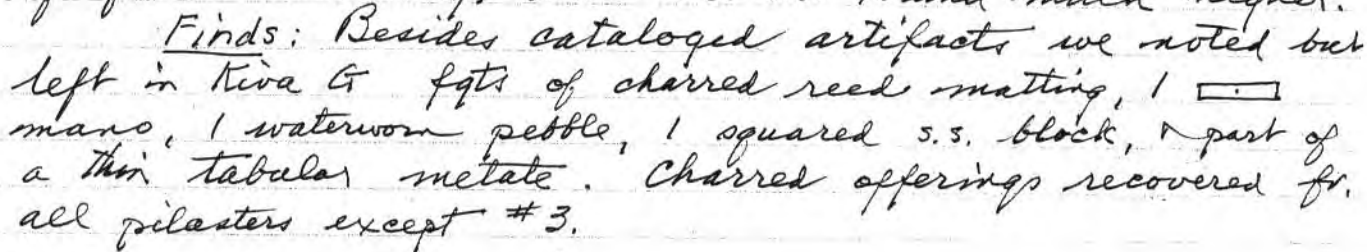 Finds: Besides cataloged artifacts we noted but
left in Kiva G fgts of charred reed matting, 1
mano, 1 waterworn pebble, 1 squared s.s. block, & part of
a thin tabular metate. Charred offerings recovered fr.
all pilasters except #3.